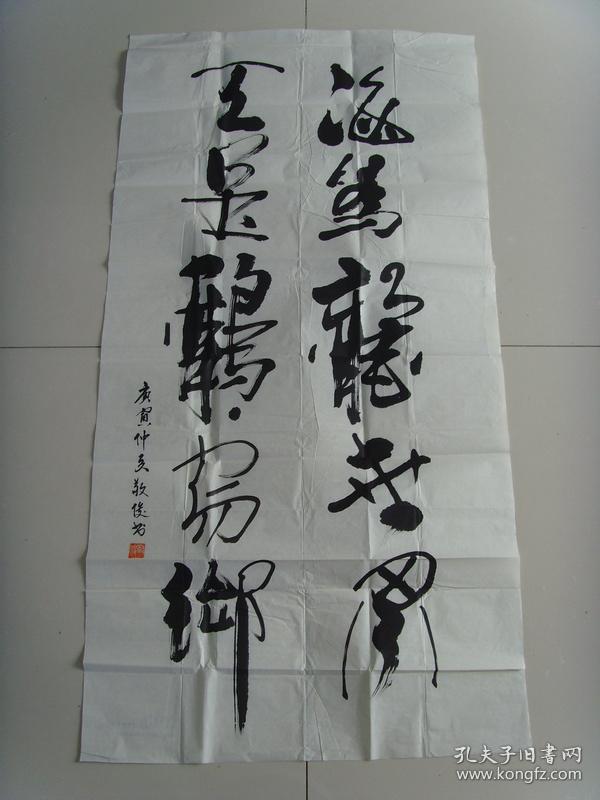 海為龍世界
天是鶴家鄉
庚寅仲夏敬俊书
孔夫子旧书网
www.kongfz.com